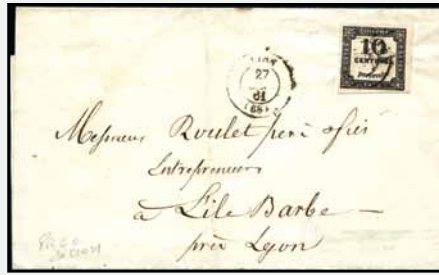 LYON
27
61
(68)
10
CENTIMES
Messieurs Roulet père & fils
Entrepreneurs
à L'ile Barbe
près Lyon